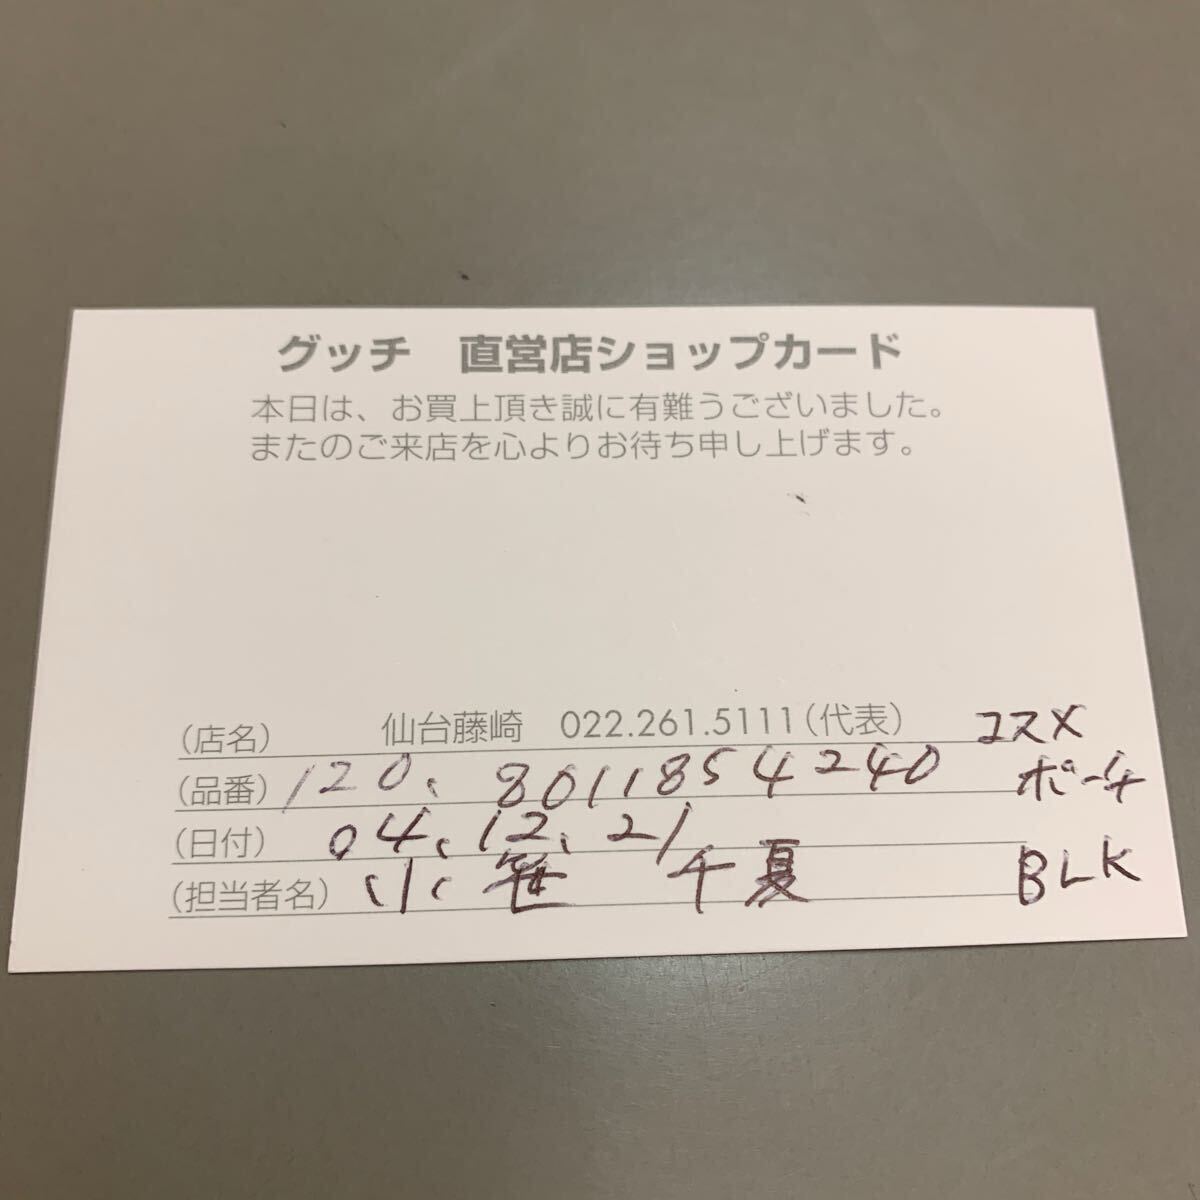 グッチ　直営店ショップカード
本日は、お買上頂き誠に有難うございました。
またのご来店を心よりお待ち申し上げます。
(店名)　仙台藤崎　022.261.5111(代表)　コスメ
(品番) 120、8011854240　ポーチ
(日付) 04、12、21
(担当者名) 小笹　千夏　BLK